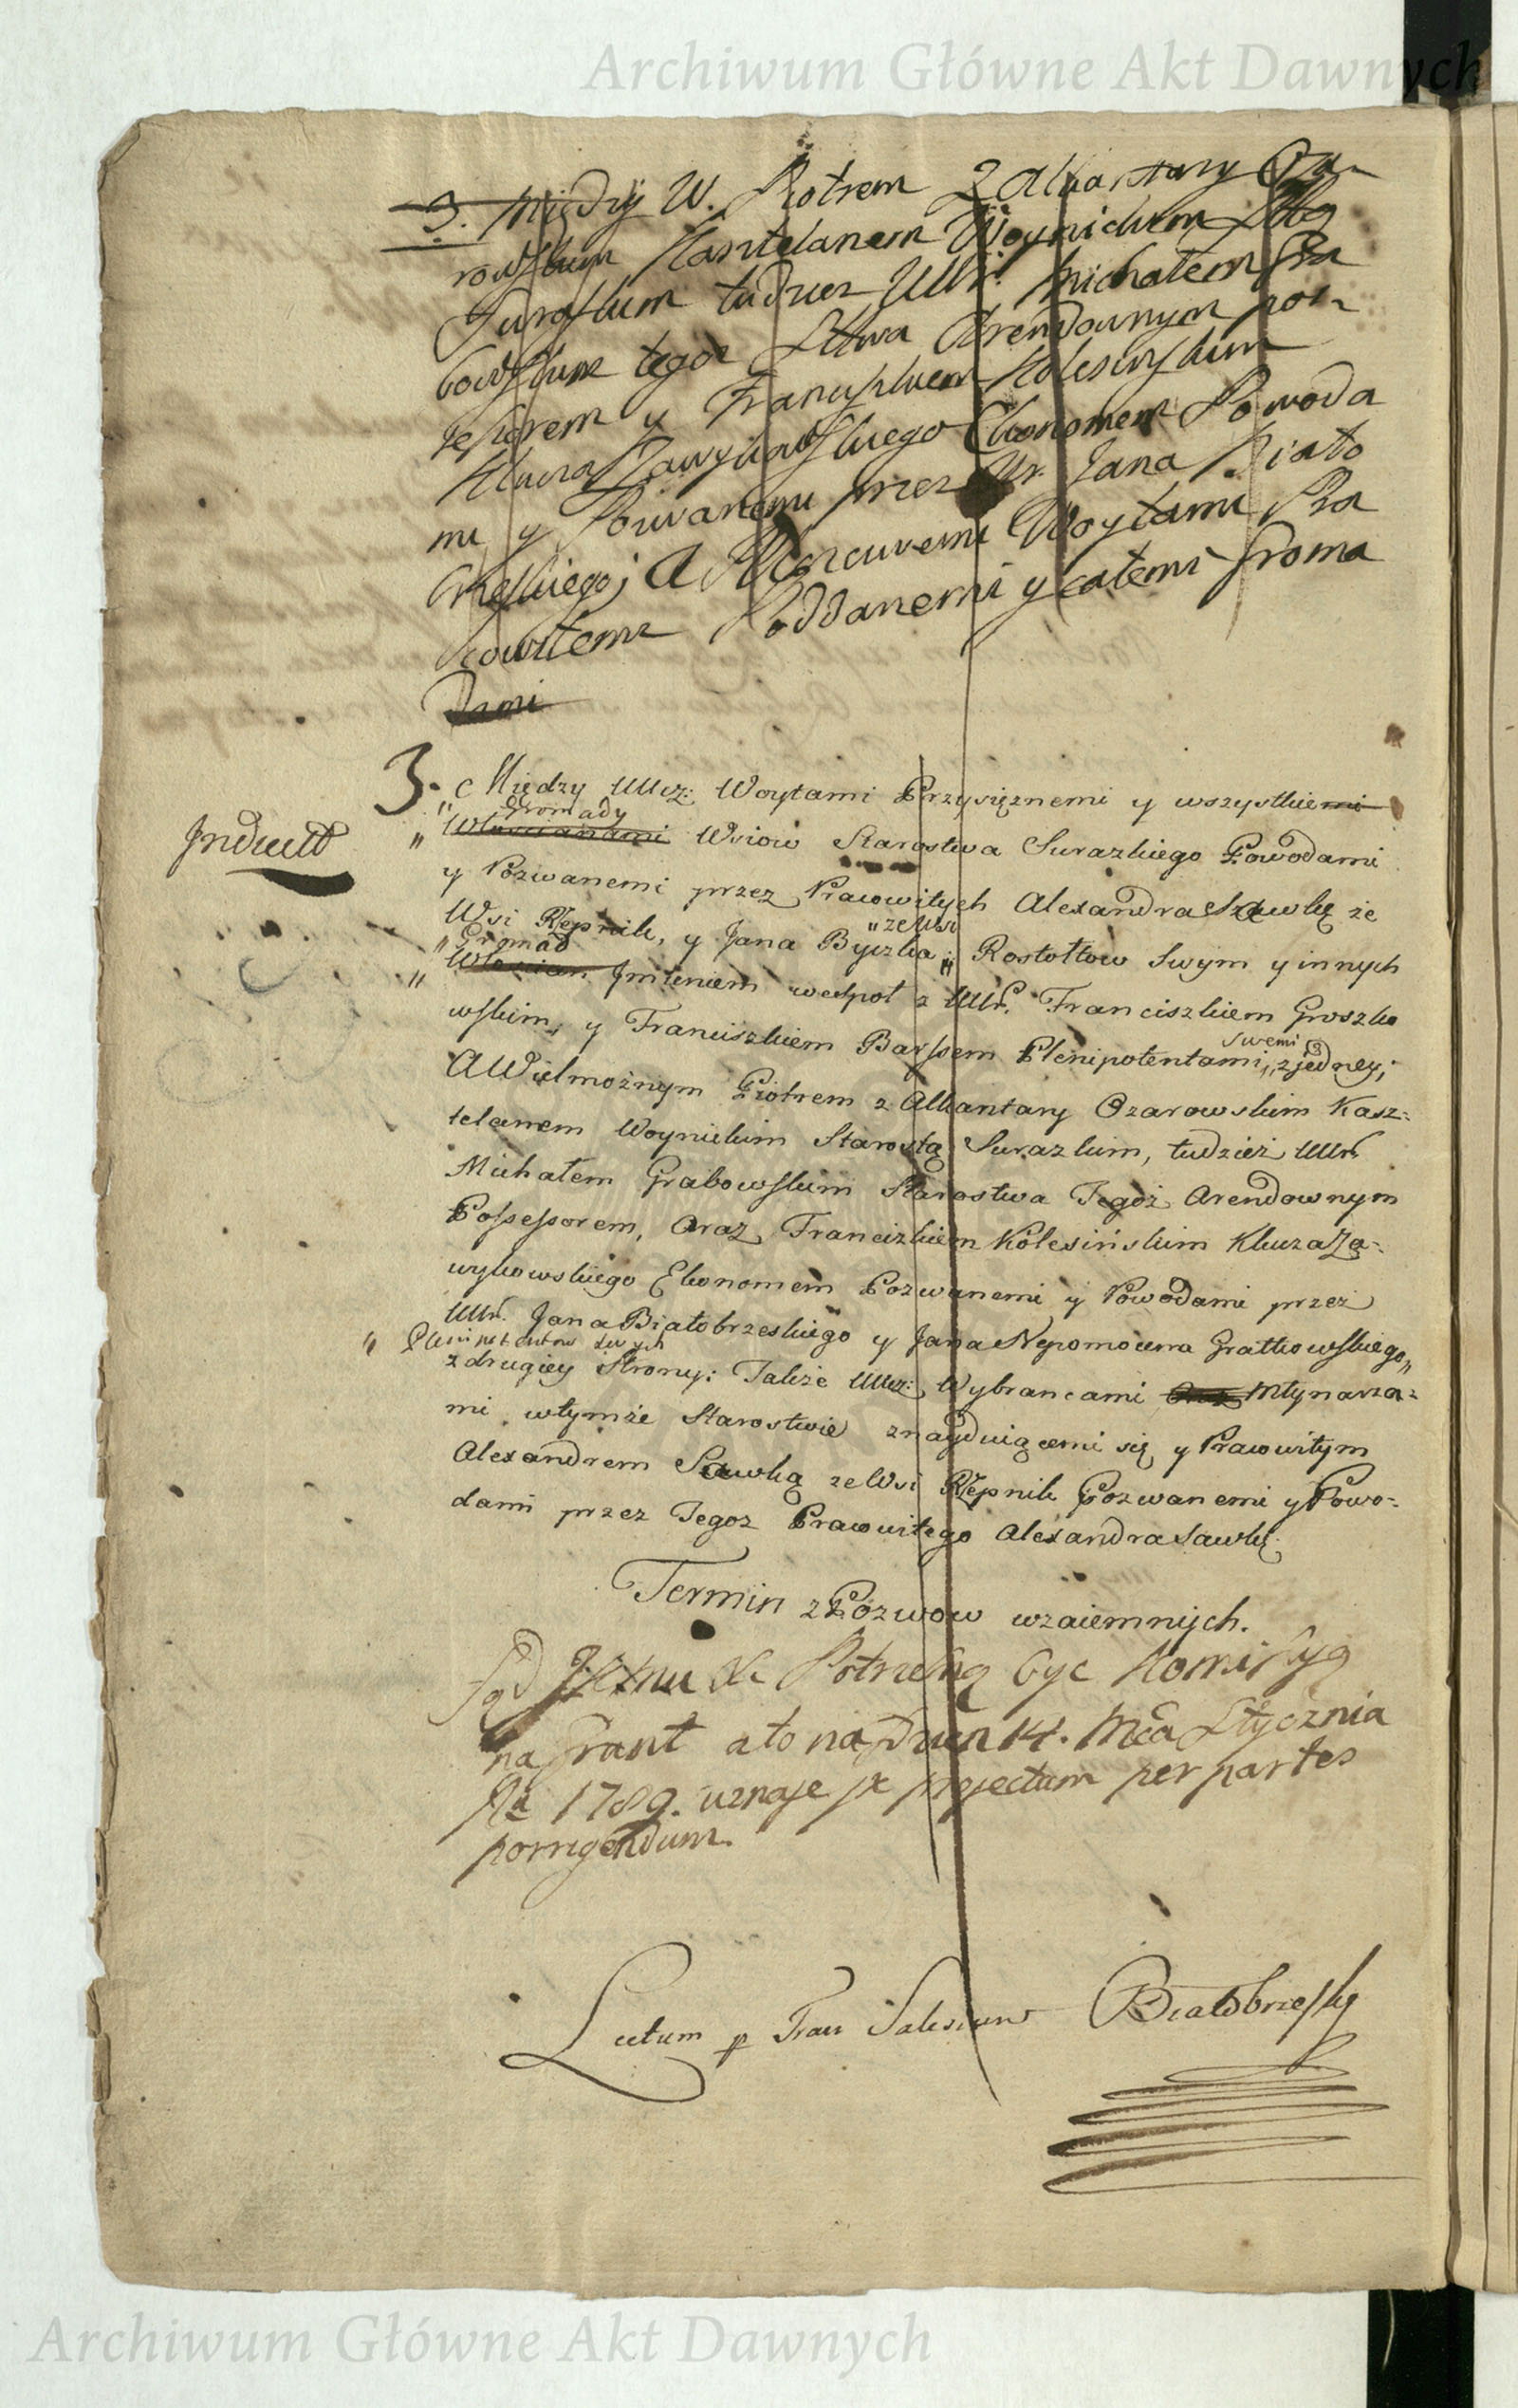 Archiwum Główne Akt Dawnych
3. Między W. Piotrem z Alkantary Oża
rowskim Kasztelanem Woynickim Sttą
Suraskim tudziez Ur. Michałem Gra
bowskim tegoz Sttwa Arendownym pos
sessorem y Franciszkiem Kolesinskim
Klucza Zawykowskiego Ekonomem Powoda
mi y Pozwanemi przez Ur. Jana Biało
brzeskiego; A Uczciwemi Woytami Pra
cowitemi Poddanemi y całemi Groma
dami
3. Między UUcz: Woytami Przysięznemi y wszystkiemi
" Gromady
" Włościanami Wsiow Starostwa Surazkiego Powodami
y Pozwanemi przez Pracowitych Alexandra Sawkę ze
Wsi Rzepnik, y Jana Byczka " ze Wsi " Rostołtow Swym y innych
" Gromad
" Włoscian Jmieniem wespoł z UUr. Franciszkiem Groszko
wskim, y Franciszkiem Barssem Plenipotentami, swemi z jedney;
A Wielmożnym Piotrem z Alkantary Ozarowskim Kasz:
telanem Woynickim Starostą Surazkim, tudzież UUr.
Michałem Grabowskim Starostwa Tegoż Arendownym
Possessorem, Oraz Franciszkiem Kolesińskim Klucza Za:
wykowskiego Ekonomem Pozwanemi y Powodami przez
UUr. Jana Białobrzeskiego y Jana Nepomocena Gratkowskiego "
" Plenipotentow swych
z drugiey Strony: Także UUcz: Wybrancami Oraz Młynarza:
mi w tymże Starostwie znayduiącemi się y Pracowitym
Alexandrem Sawką ze Wsi Rzepnik Pozwanemi y Powo:
dami przez Tegoz Pracowitego Alexandra Sawkę.
Termin z Pozwow wzaiemnych.
Sąd Potrzebną byc Komissyą
na Grunt a to na Dzien 14. Mca Stycznia
Ru 1789. uznaje projectum per partes
porrigendum.
Lectum p Fran Salesium Białobrzeski
Induct
Archiwum Główne Akt Dawnych